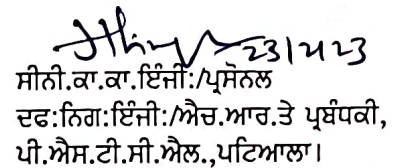 23/11/23
ਸੀਨੀ.ਕਾ.ਕਾ.ਇੰਜੀ:/ਪ੍ਰਸੋਨਲ
ਦਫ:ਨਿਗ:ਇੰਜੀ:/ਐਚ.ਆਰ.ਤੇ ਪ੍ਰਬੰਧਕੀ,
ਪੀ.ਐਸ.ਟੀ.ਸੀ.ਐਲ.,ਪਟਿਆਲਾ।